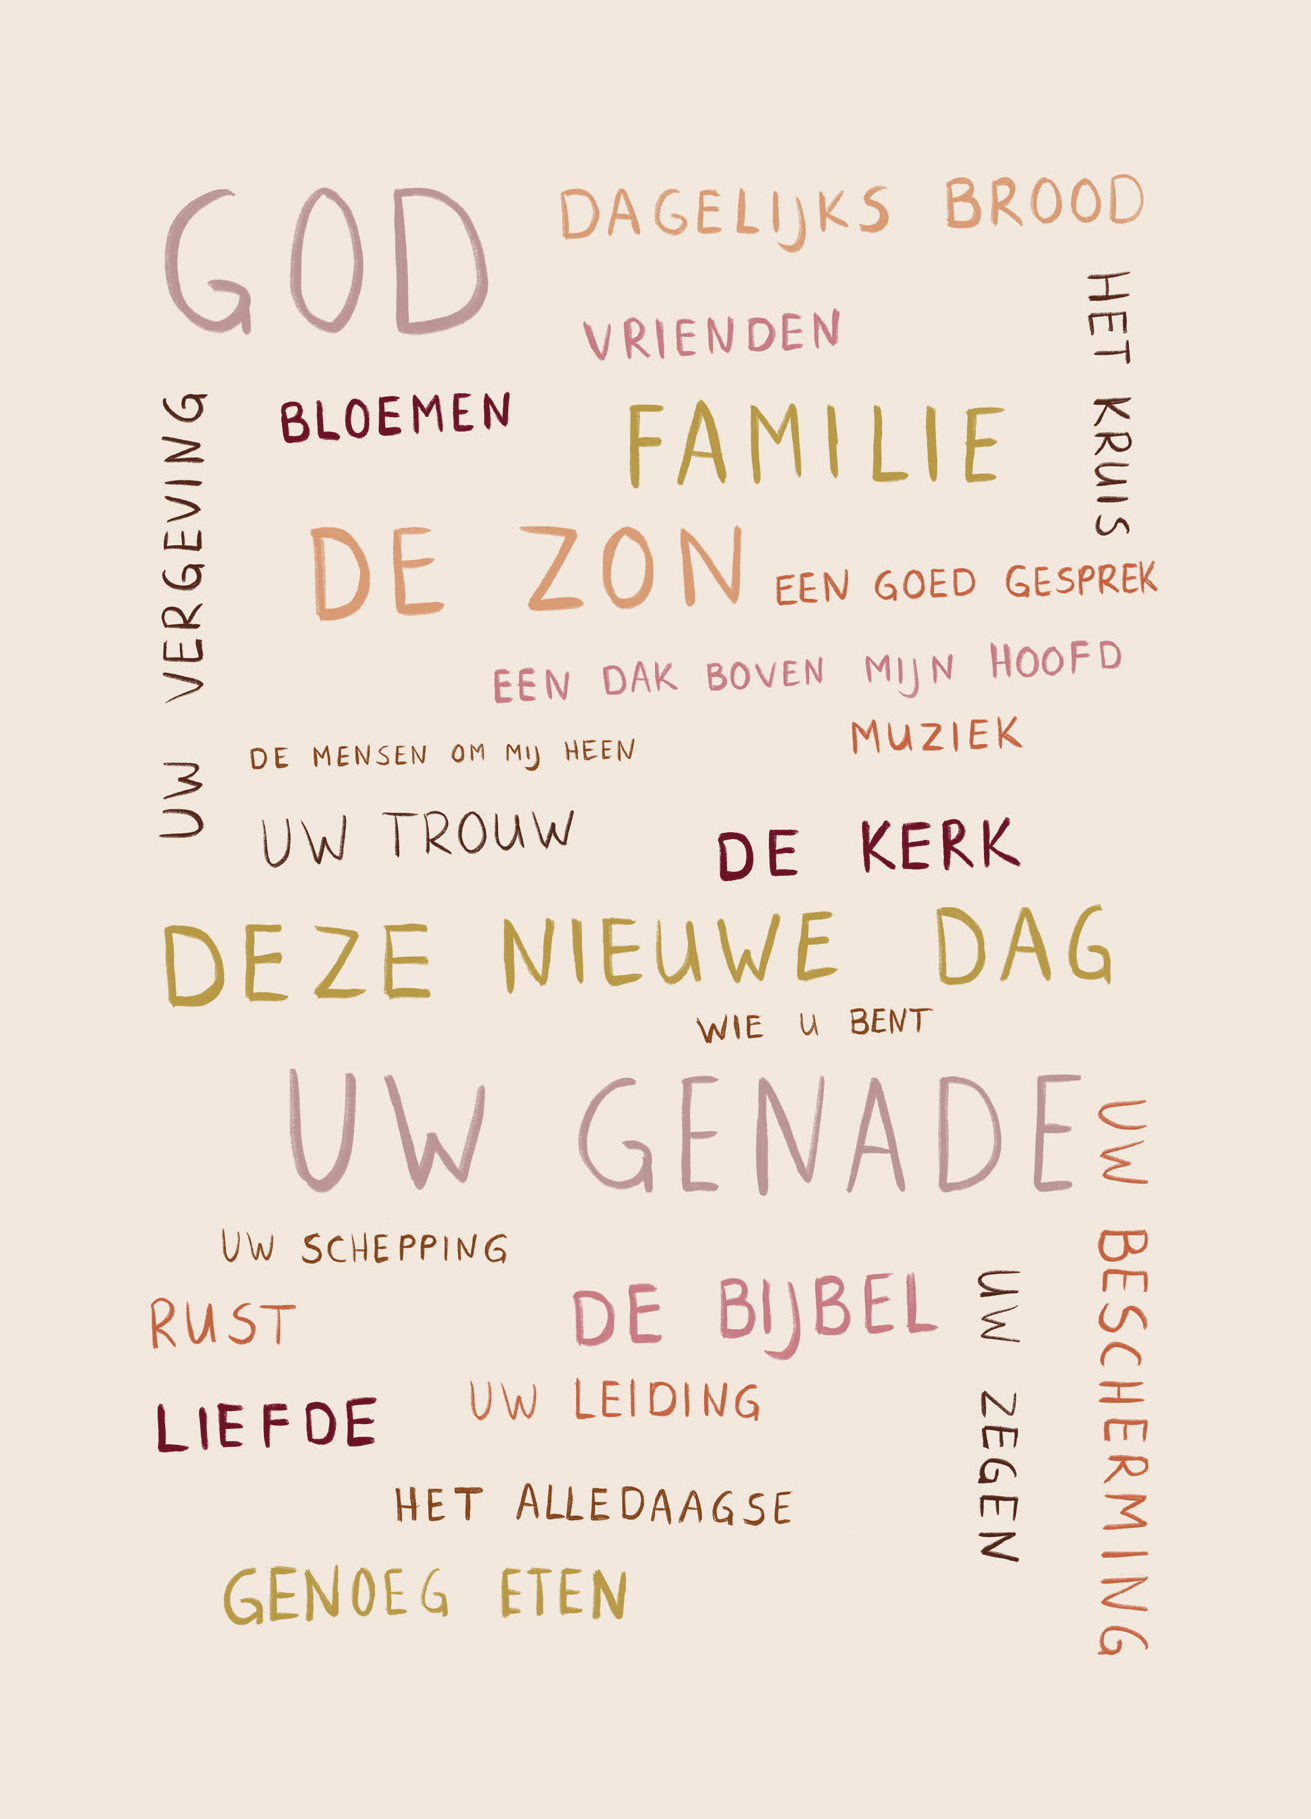 GOD
DAGELIJKS BROOD
VRIENDEN
HET KRUIS
BLOEMEN
FAMILIE
UW VERGEVING
DE ZON
EEN GOED GESPREK
EEN DAK BOVEN MIJN HOOFD
MUZIEK
DE MENSEN OM MIJ HEEN
UW TROUW
DE KERK
DEZE NIEUWE DAG
WIE U BENT
UW GENADE
UW BESCHERMING
UW SCHEPPING
RUST
DE BIJBEL
UW ZEGEN
LIEFDE
UW LEIDING
HET ALLEDAAGSE
GENOEG ETEN